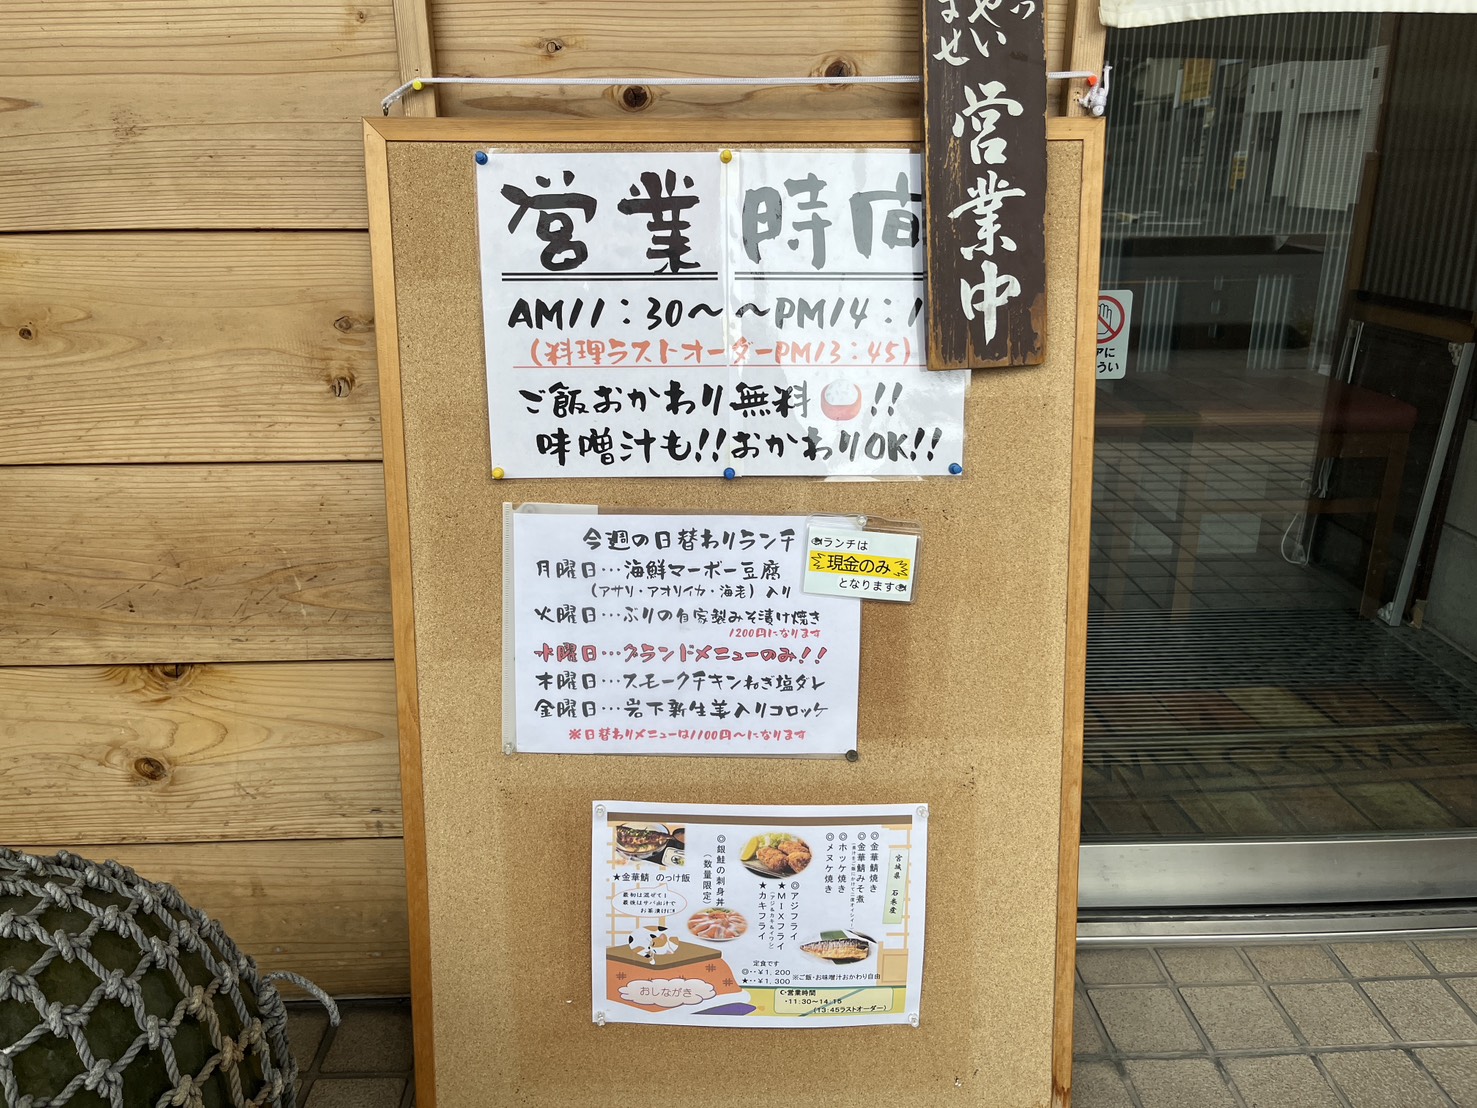 ませ
やい
営業中
営業時間
AM11：30〜〜PM14：1
（料理ラストオーダーPM13：45）
ご飯おかわり無料!!
味噌汁も!!おかわりOK!!
今週の日替わりランチ
月曜日…海鮮マーボー豆腐
（アサリ・アオリイカ・海老）入り
火曜日…ぶりの自家製みそ漬け焼き
1200円になります
水曜日…グランドメニューのみ!!
木曜日…スモークチキンねぎ塩ダレ
金曜日…岩下新生姜入りコロッケ
※日替わりメニューは1100円〜になります
ランチは
現金のみ
となります
宮城県 石巻産
◎金華鯖焼き
◎金華鯖みそ煮
◎ホッケ焼き
◎メヌケ焼き
◎アジフライ
★MIXフライ
(アジ&カキ&イワシ)
★カキフライ
◎銀鮭の刺身丼
（数量限定）
★金華鯖 のっけ飯
最初は混ぜて！
最後はサバ出汁で
お茶漬けに!!
定食です
◎・・¥1,200
★・・¥1,300
※ご飯・お味噌汁おかわり自由
おしながき
営業時間
・11:30〜14:15
(13:45ラストオーダー)
アに
うい
WELCOME